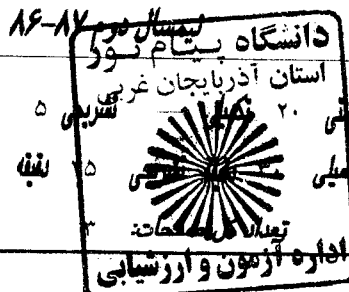 نیمسال دوم ۸۷-۸۶
دانشگاه پیام نور
استان آذربایجان غربی
۲۰ تشریحی ۵
دقیقه
تعداد کل صفحات: ۳
اداره آزمون و ارزشیابی